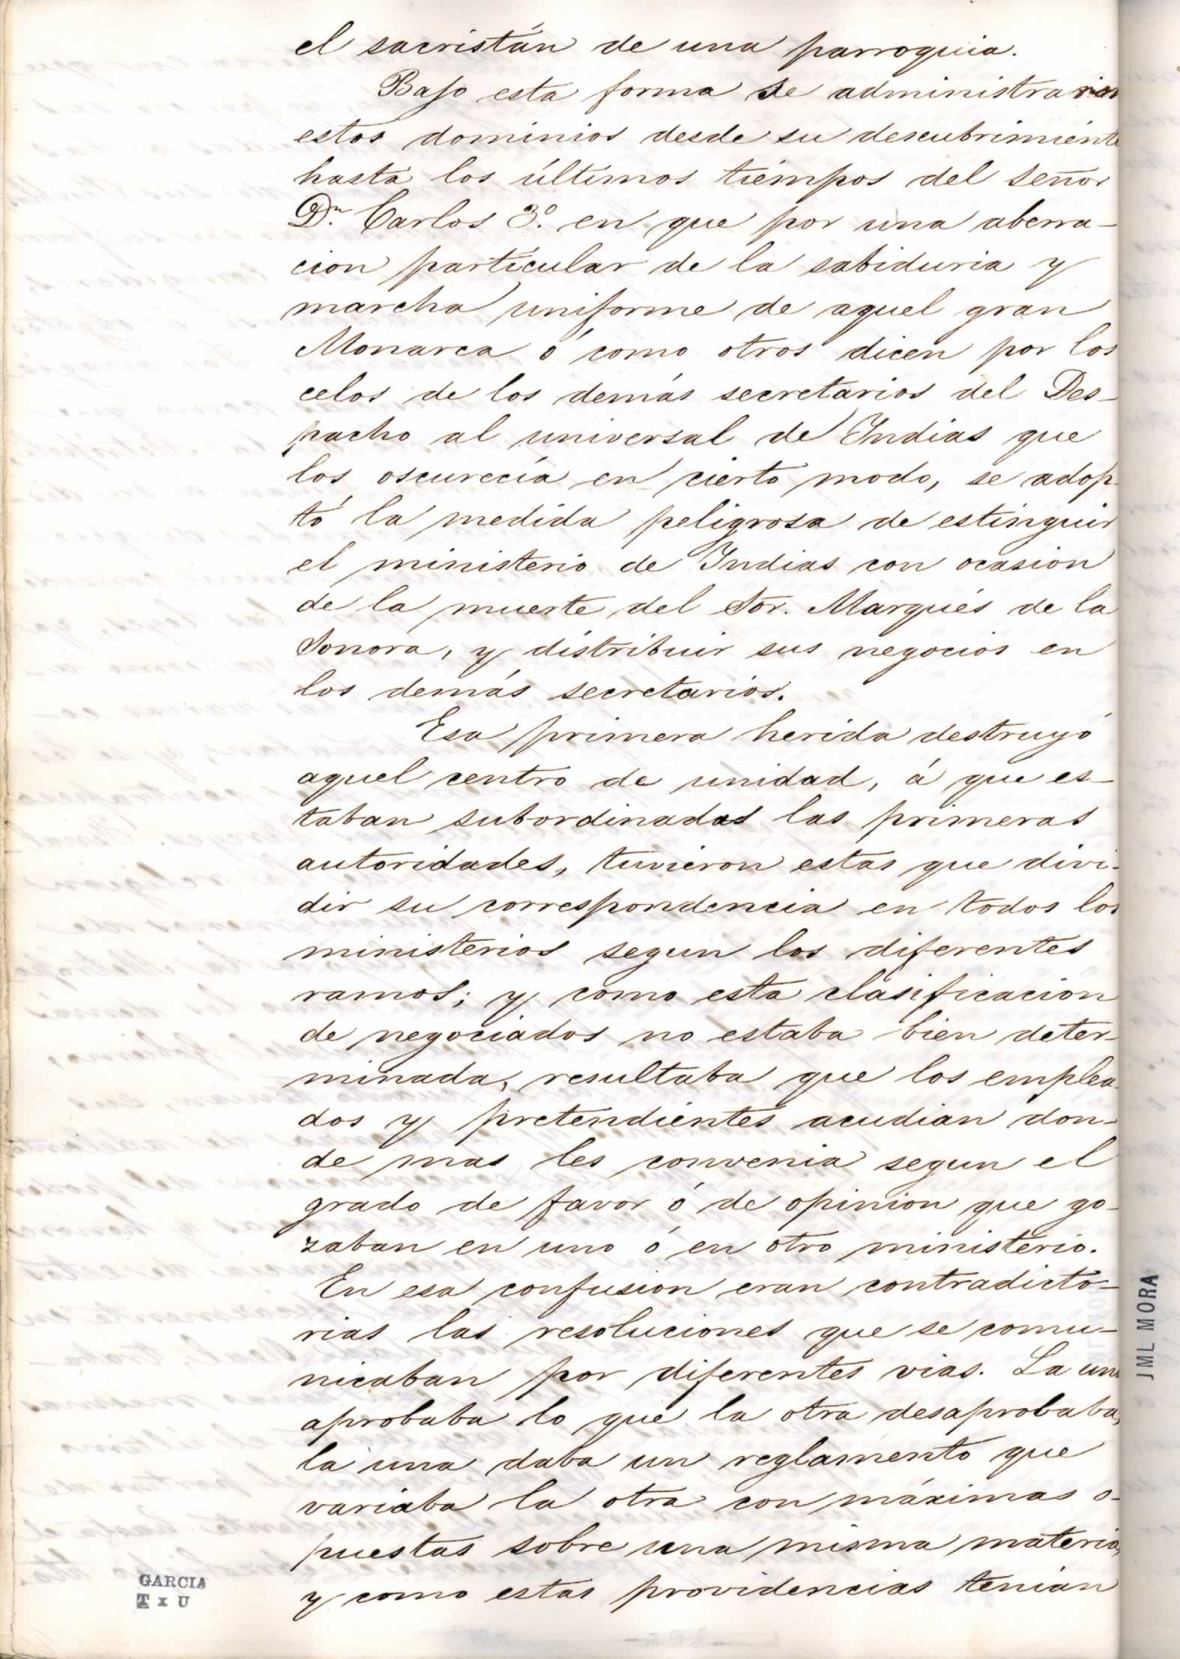 el sacristán de una parroquia.
Bajo esta forma se administraron
estos dominios desde su descubrimiento
hasta los últimos tiempos del señor
Dn. Carlos 3º. en que por una aberra-
cion particular de la sabiduria y
marcha uniforme de aquel gran
Monarca ó como otros dicen por los
celos de los demás secretarios del Des-
pacho al universal de Indias que
los oscurecía en cierto modo, se adop-
tó la medida peligrosa de estinguir
el ministerio de Indias con ocasion
de la muerte del Sor. Marqués de la
Sonora, y distribuir sus negocios en
los demás secretarios.
Esa primera herida destruyó
aquel centro de unidad, á que es-
taban subordinadas las primeras
autoridades, tuvieron estas que divi-
dir su correspondencia en todos los
ministerios segun los diferentes
ramos; y como esta clasificacion
de negociados no estaba bien deter-
minada, resultaba que los emplea-
dos y pretendientes acudian don-
de mas les convenia segun el
grado de favor ó de opinion que go-
zaban en uno ó en otro ministerio.
En esa confusion eran contradicto-
rias las resoluciones que se comu-
nicaban por diferentes vias. La una
aprobaba lo que la otra desaprobaba,
la una daba un reglamento que
variaba la otra con máximas o-
puestas sobre una misma materia,
y como estas providencias tenian
GARCIA
T x U
JML MORA